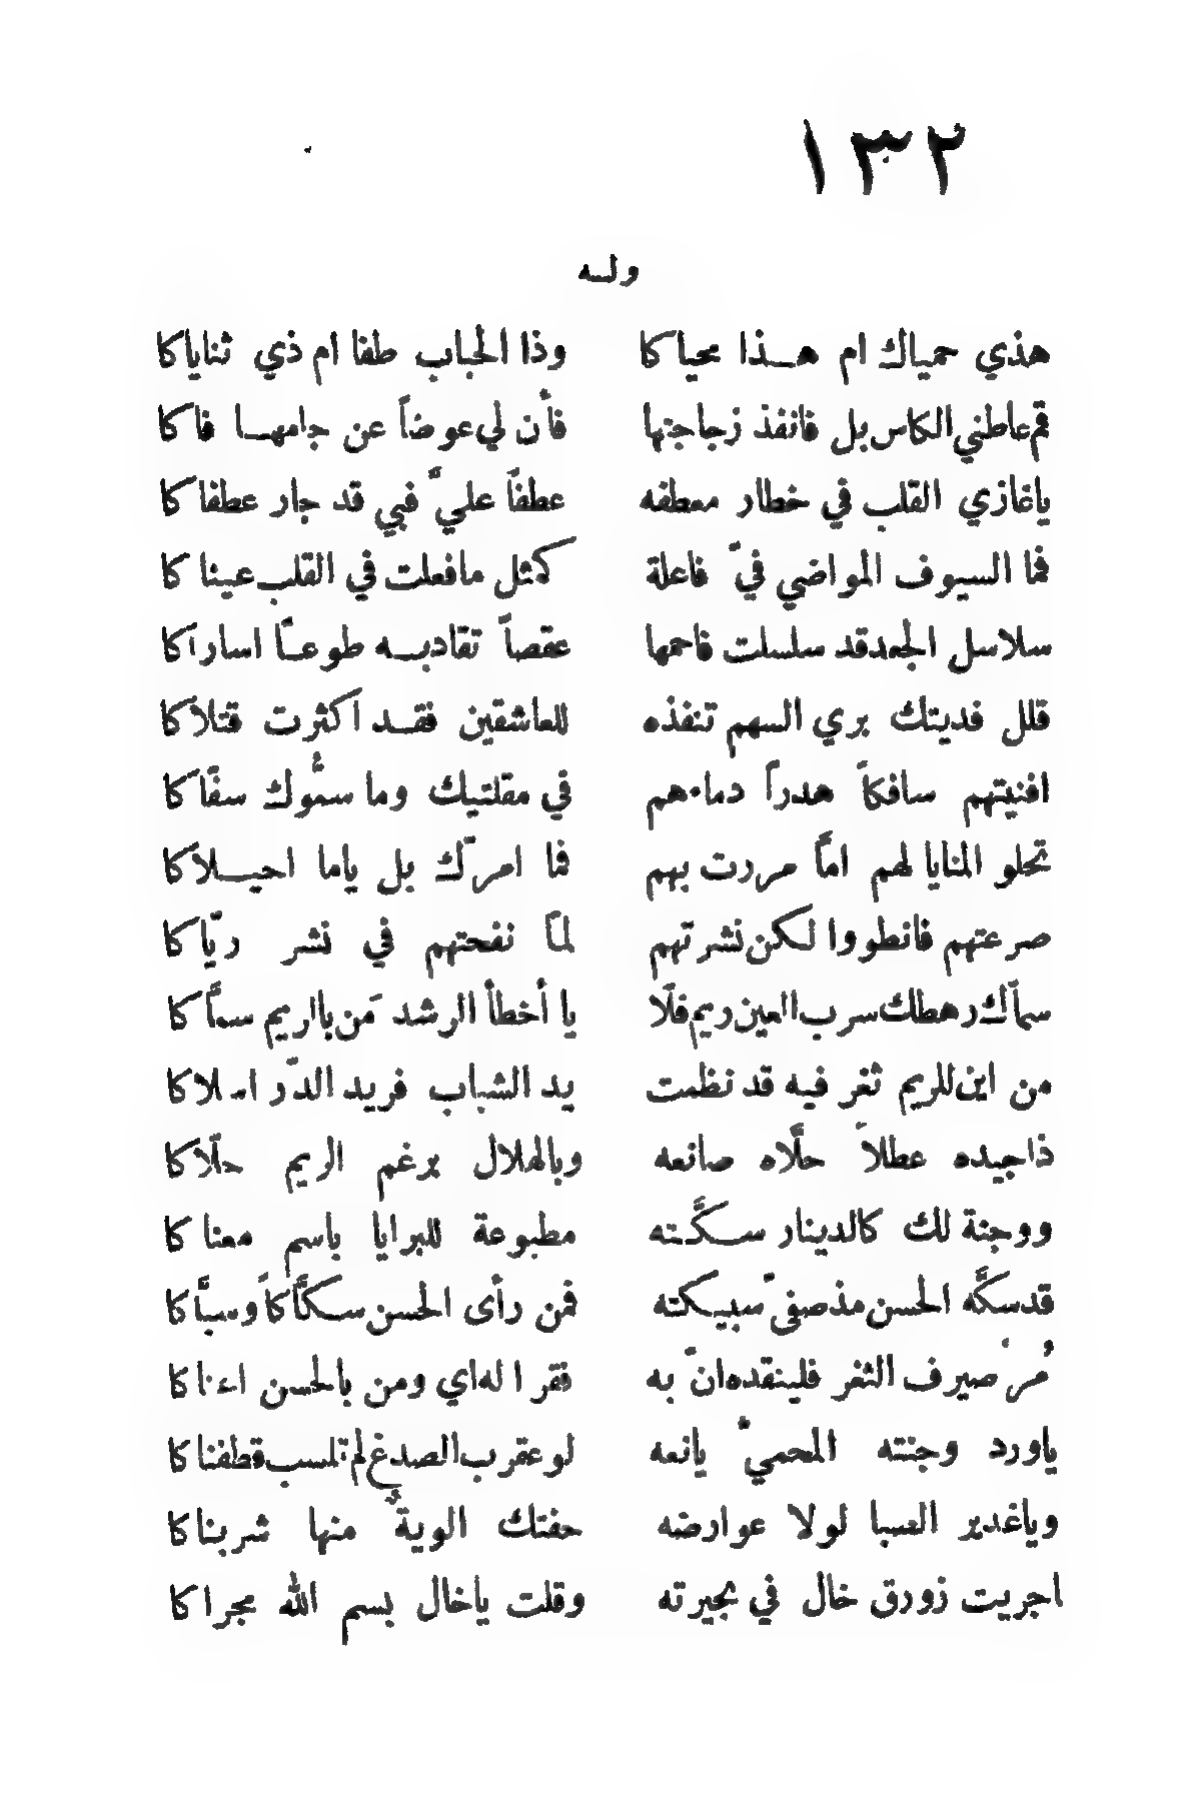 ١٣٢
وله
هذي حمياك ام هذا محياكا وذا الحباب طفا ام ذي ثناياكا
قم عاطني الكاس بل فانفذ زجاجتها فأن لي عوضاً عن جامها فاكا
ياغازي القلب في خطار معطفه عطفاً عليَّ فبي قد جار عطفاكا
فما السيوف المواضي فيّ فاعلة كمثل مافعلت في القلب عيناكا
سلاسل الجعد قد سلسلت فاحمها عقصاً تقاد به طوعاً اساراكا
قلل فديتك بري السهم تنفذه للعاشقين فقد اكثرت قتلاكا
افنيتهم سافكاً هدراً دماءهم في مقلتيك وما سمُّوك سفّاكا
تحلو المنايا لهم امّا مررت بهم فما امرّك بل ياما احيلاكا
صرعتهم فانطووا لكن نشرتهم لمّا نفحتهم في نشر ريّاكا
سمّاك رهطك سرب العين ريم فلّا يا أخطأ الرشد مَن باالريم سمّاكا
من اين للريم ثغر فيه قد نظمت يد الشباب فريد الدّر املاكا
ذاجيده عطلاً حلّاه صانعه وبالهلال برغم الريم حلّاكا
ووجنة لك كالدينار سكَّته مطبوعة للبرايا باسم معناكا
قد سكَّه الحسن مذ صفّى سبيكته فمن رأى الحسن سكّاكاً وسبّاكا
مُر صيرف الثغر فلينقده انّ به فقر اله اي ومن بالحسن اغناكا
ياورد وجنته المحميّ يانعه لو عقرب الصدغ لم تلسب قطفناكا
وياغدير الصبا لولا عوارضه حفتك الويةٌ منها شربناكا
اجريت زورق خال في بحيرته وقلت ياخال بسم الله مجراكا